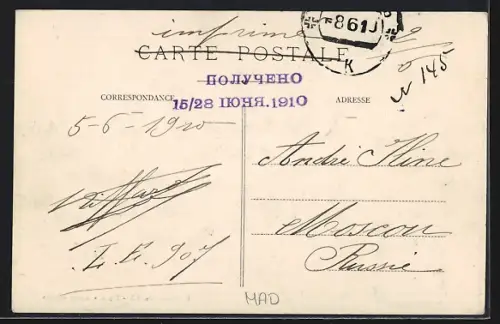 imprimé
CARTE POSTALE
8 6 10
K
№ 145
ПОЛУЧЕНО
15/28 ІЮНЯ.1910
CORRESPONDANCE
ADRESSE
5-6-1910
André Kline
Moscou
Russie
I. E. 907
MAD